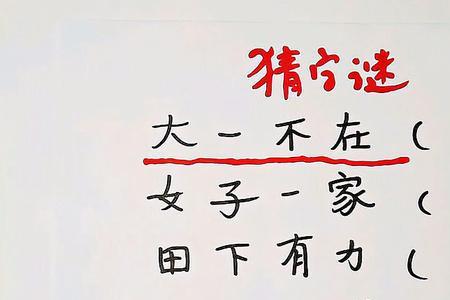 猜字谜
大一不在（
女子一家（
田下有力（